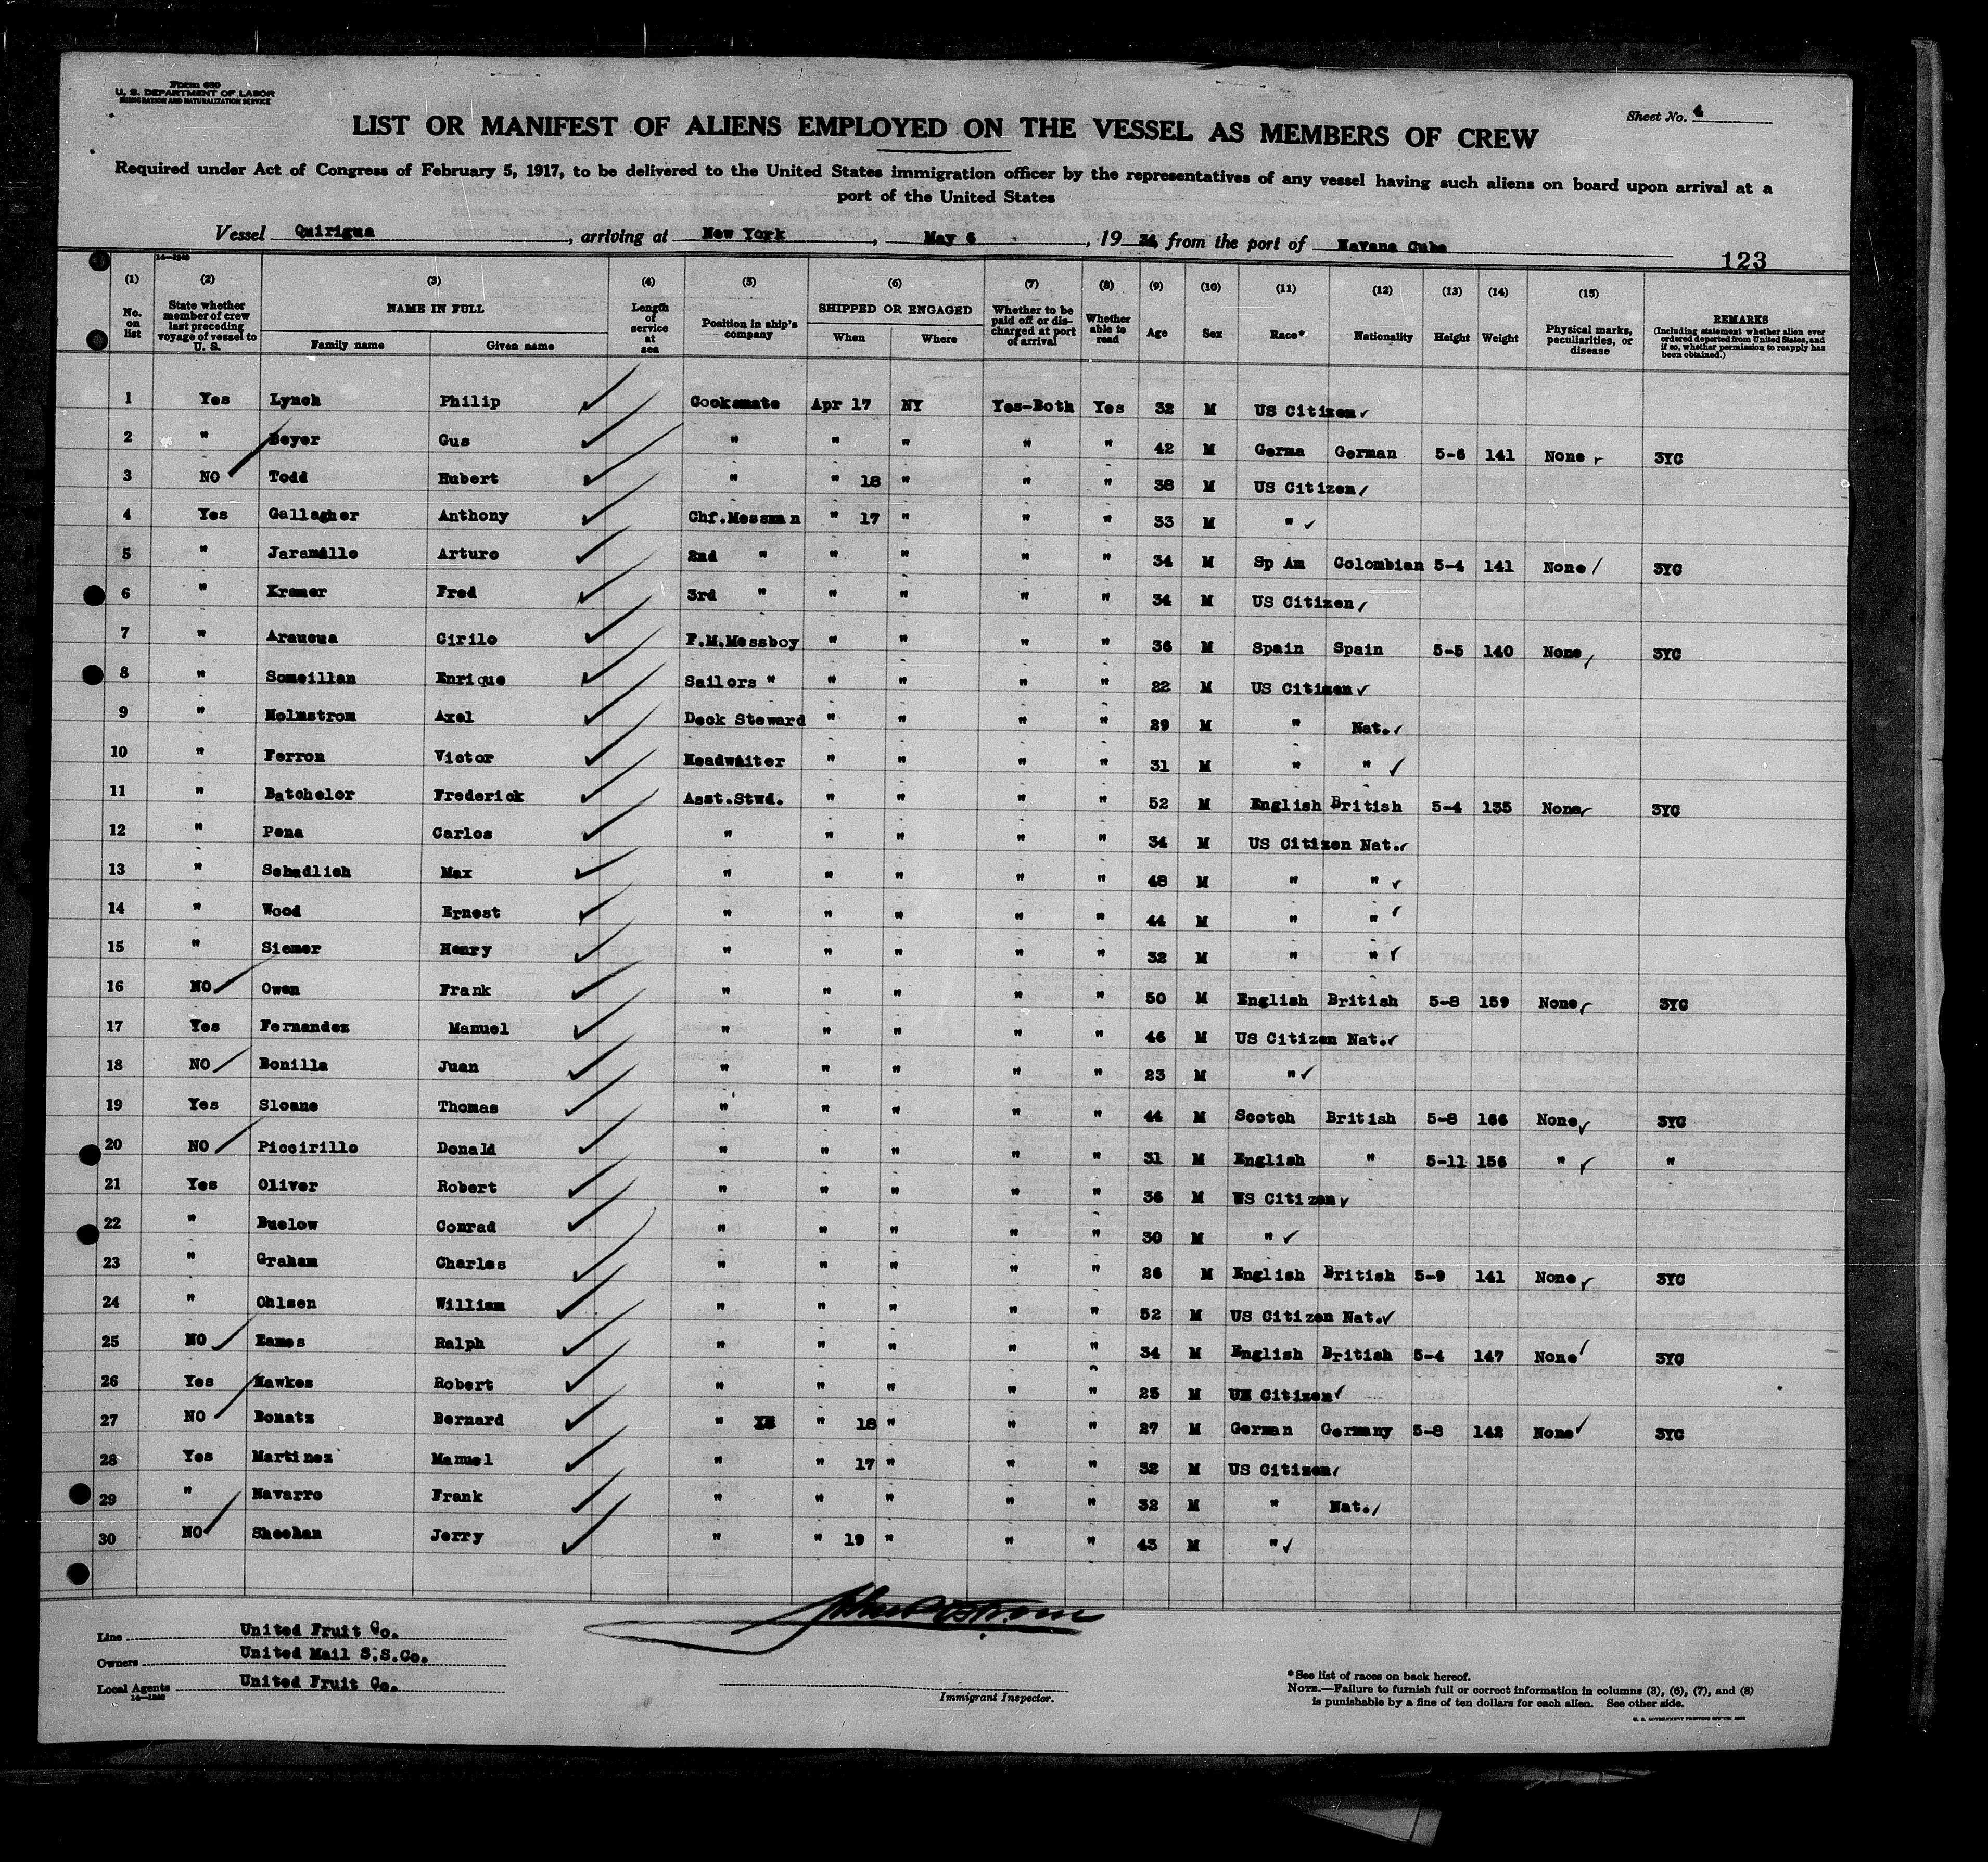 Form 680
U. S. DEPARTMENT OF LABOR
IMMIGRATION AND NATURALIZATION SERVICE
Sheet No. 4
LIST OR MANIFEST OF ALIENS EMPLOYED ON THE VESSEL AS MEMBERS OF CREW
Required under Act of Congress of February 5, 1917, to be delivered to the United States immigration officer by the representatives of any vessel having such aliens on board upon arrival at a
port of the United States
Vessel Quirigua, arriving at New York, May 6, 19 34, from the port of Havana Cuba
123
14—1240
(1) (2) (3) (4) (5) (6) (7) (8) (9) (10) (11) (12) (13) (14) (15)
No. on list State whether member of crew last preceding voyage of vessel to U. S. NAME IN FULL Family name Given name Length of service at sea Position in ship's company SHIPPED OR ENGAGED When Where Whether to be paid off or discharged at port of arrival Whether able to read Age Sex Race* Nationality Height Weight Physical marks, peculiarities, or disease REMARKS (Including statement whether alien ever ordered deported from United States, and if so, whether permission to reapply has been obtained.)
1 Yes Lynch Philip Cooksmate Apr 17 NY Yes-Both Yes 32 M US Citizen
2 " Beyer Gus " " " " " 42 M Germa German 5-6 141 None 3YC
3 NO Todd Hubert " " 18 " " " 38 M US Citizen
4 Yes Gallagher Anthony Chf.Messman " 17 " " " 33 M "
5 " Jaramillo Arturo 2nd " " " " " 34 M Sp Am Colombian 5-4 141 None 3YC
6 " Kramer Fred 3rd " " " " " 34 M US Citizen
7 " Araucua Cirilo P.M.Messboy " " " " 36 M Spain Spain 5-5 140 None 3YC
8 " Someillan Enrique Sailors " " " " " 22 M US Citizen
9 " Holmstrom Axel Deck Steward " " " " 29 M " Nat.
10 " Ferron Victor Headwaiter " " " " 31 M " "
11 " Batchelor Frederick Asst.Stwd. " " " " 52 M English British 5-4 135 None 3YC
12 " Pena Carlos " " " " " 34 M US Citizen Nat.
13 " Schadlich Max " " " " " 48 M " "
14 " Wood Ernest " " " " " 44 M " "
15 " Siemer Henry " " " " " 32 M " "
16 NO Owen Frank " " " " " 50 M English British 5-8 159 None 3YC
17 Yes Fernandez Manuel " " " " " 46 M US Citizen Nat.
18 NO Bonilla Juan " " " " " 23 M "
19 Yes Sloane Thomas " " " " " 44 M Scotch British 5-8 166 None 3YC
20 NO Piccirillo Donald " " " " " 31 M English " 5-11 156 " "
21 Yes Oliver Robert " " " " " 36 M US Citizen
22 " Buelow Conrad " " " " " 30 M "
23 " Graham Charles " " " " " 26 M English British 5-9 141 None 3YC
24 " Ohlsen William " " " " " 52 M US Citizen Nat.
25 NO Eames Ralph " " " " " 34 M English British 5-4 147 None 3YC
26 Yes Hawkes Robert " " " " " 25 M US Citizen
27 NO Bonatz Bernard " " 18 " " " 27 M German Germany 5-8 142 None 3YC
28 Yes Martinez Manuel " " 17 " " " 32 M US Citizen
29 " Navarro Frank " " " " " 32 M " Nat.
30 NO Sheehan Jerry " " 19 " " " 43 M "
Line United Fruit Co.
Owners United Mail S.S.Co.
Local Agents United Fruit Co.
14—1240
Immigrant Inspector.
*See list of races on back hereof.
NOTE.—Failure to furnish full or correct information in columns (3), (6), (7), and (8)
is punishable by a fine of ten dollars for each alien. See other side.